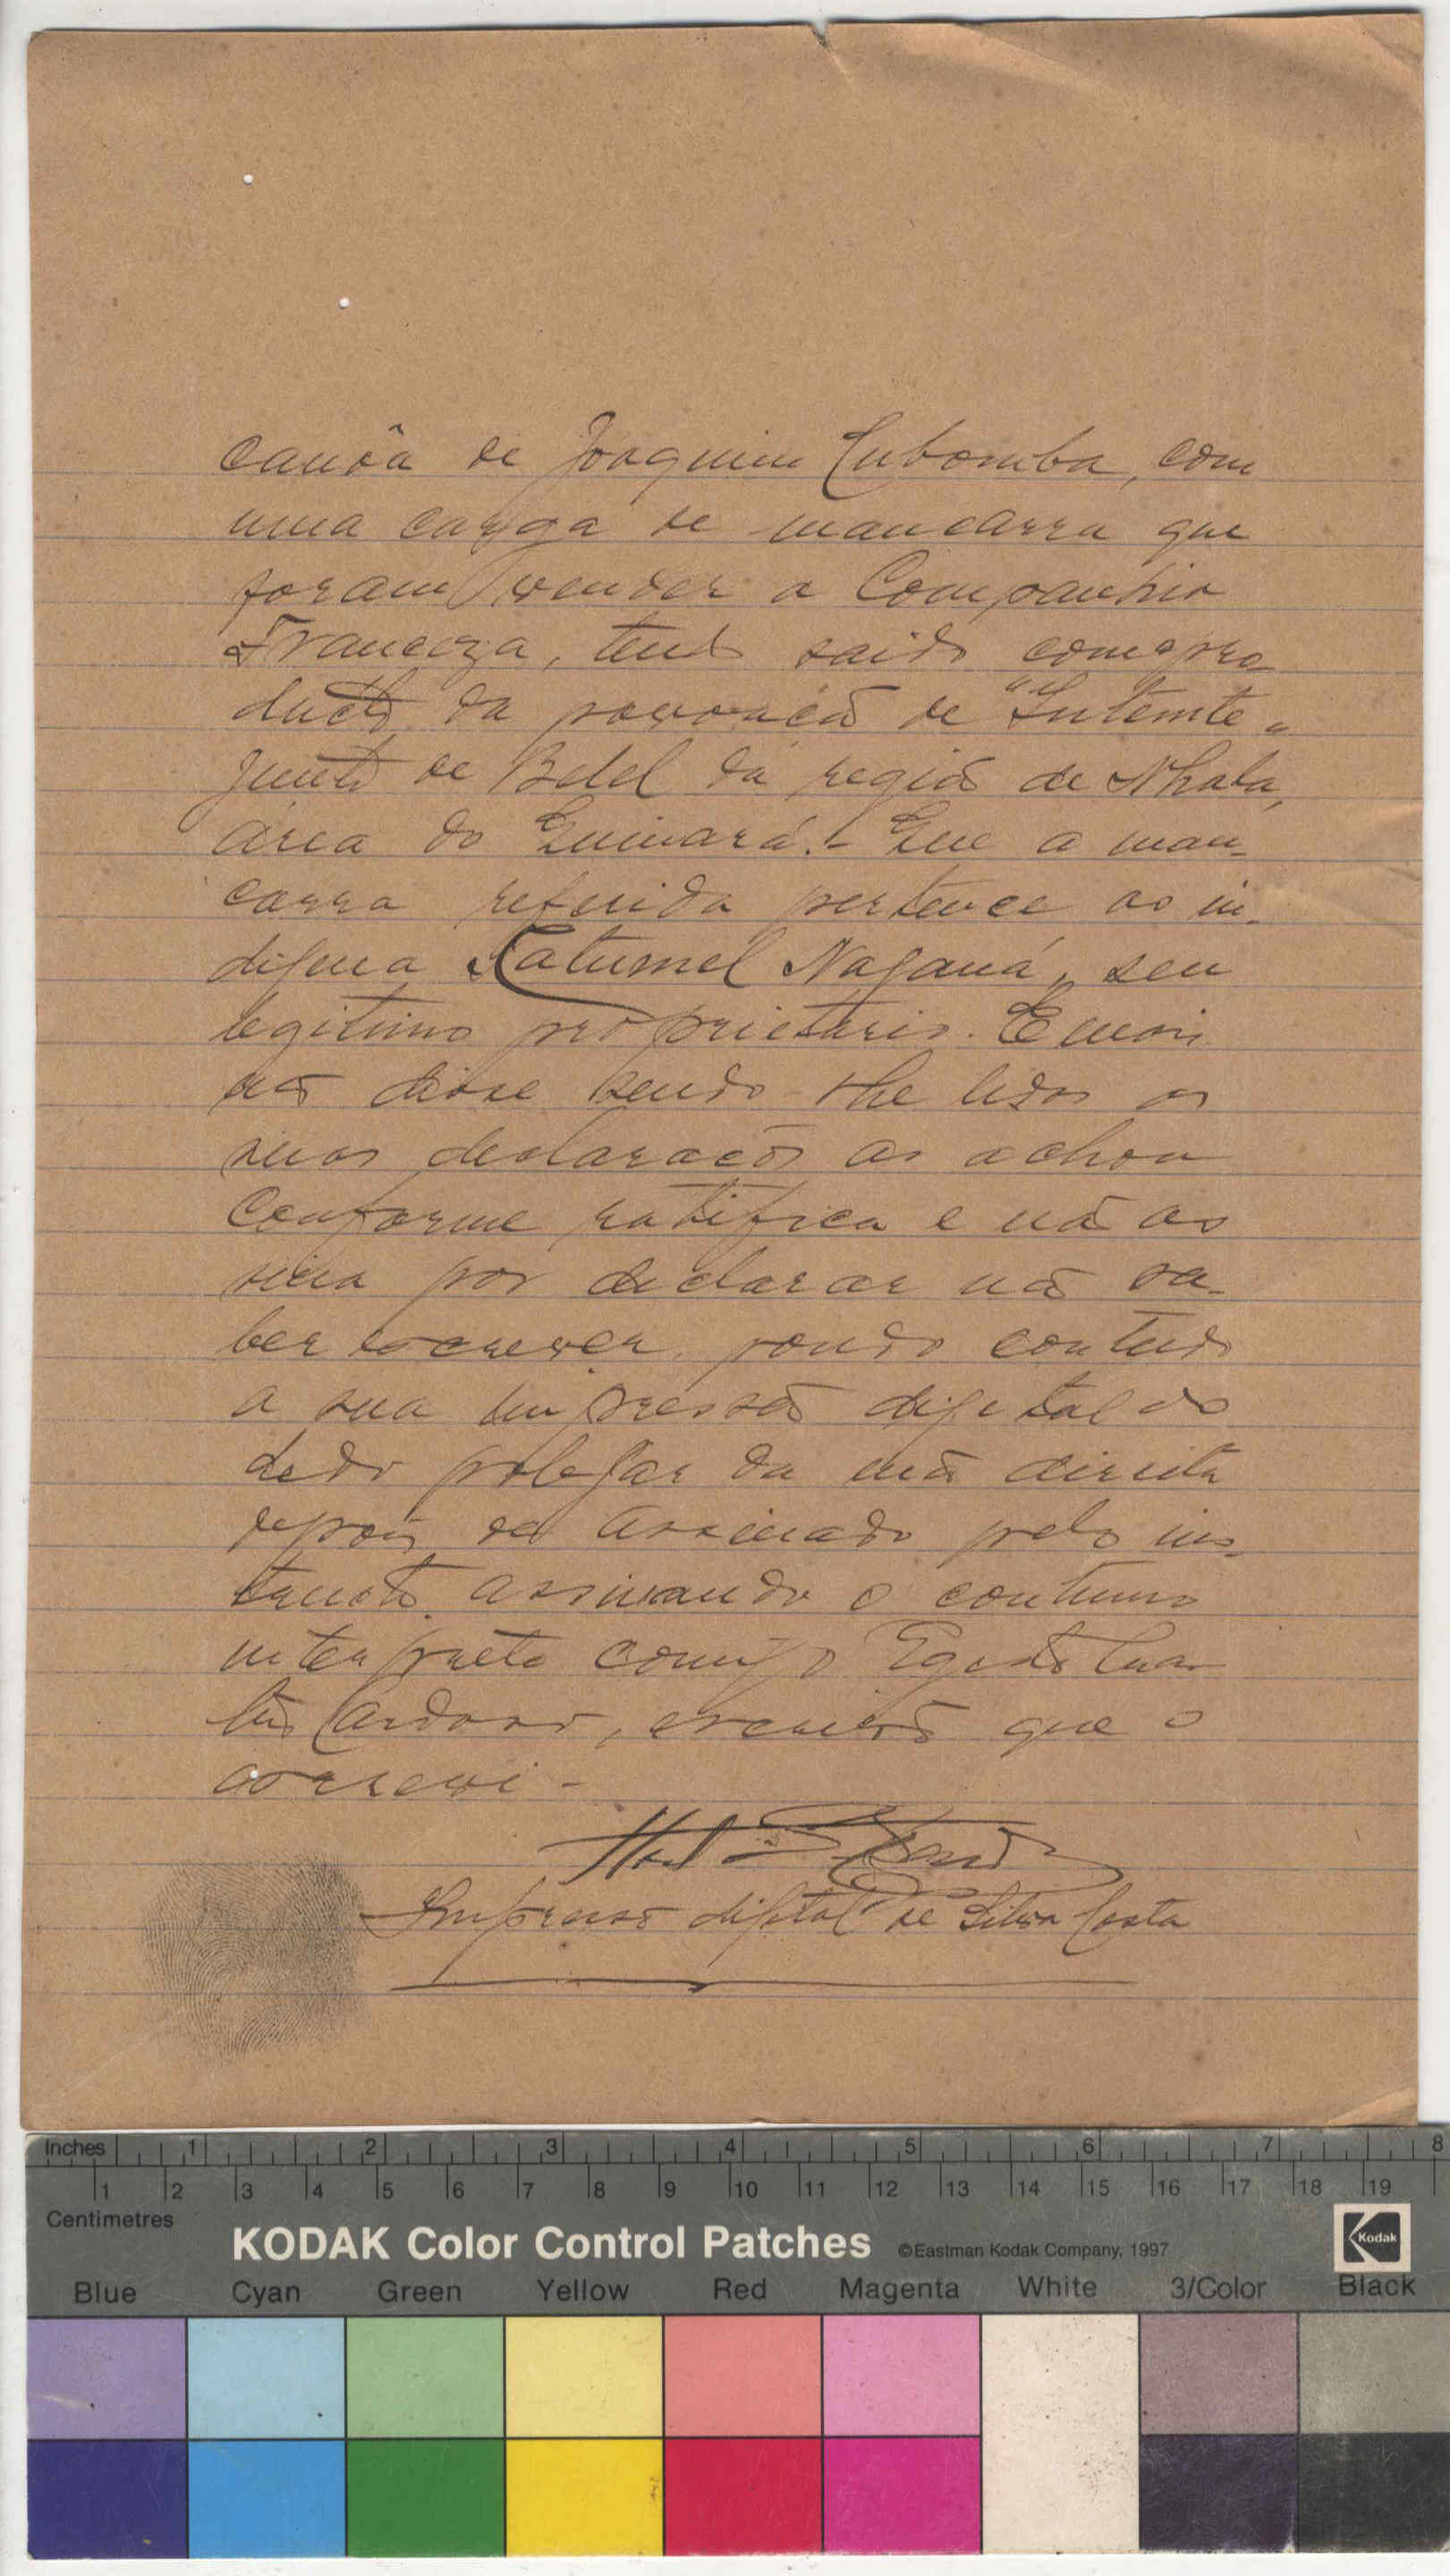 canôa de Joaquim Cubomba, com
uma carga de mancarra que
foram vender a Companhia
Franceza, tendo saido com o pro
ducto da povoação de "Intemte"
junto de Bdel da região de Nhala,
area do Quinará. - Que a man-
carra referida pertence ao in-
digena Catumel Naganá, seu
legitimo proprietario. E mais
não disse sendo-lhe lidas as
suas declarações as achou
conforme ratifica e não as
sina por declarar não sa-
ber escrever, pondo contudo
a sua impressão digital do
dedo polegar da mão direita
depois de assinado pelo ins-
tructo assinando o contumo
interprete comigo Egidio
Cardoso, escrivão que o
escrevi -
Impressão digital de Silva Costa
Inches 1 2 3 4 5 6 7 8
1 2 3 4 5 6 7 8 9 10 11 12 13 14 15 16 17 18 19
Centimetres
KODAK Color Control Patches ©Eastman Kodak Company, 1997 Kodak
Blue Cyan Green Yellow Red Magenta White 3/Color Black